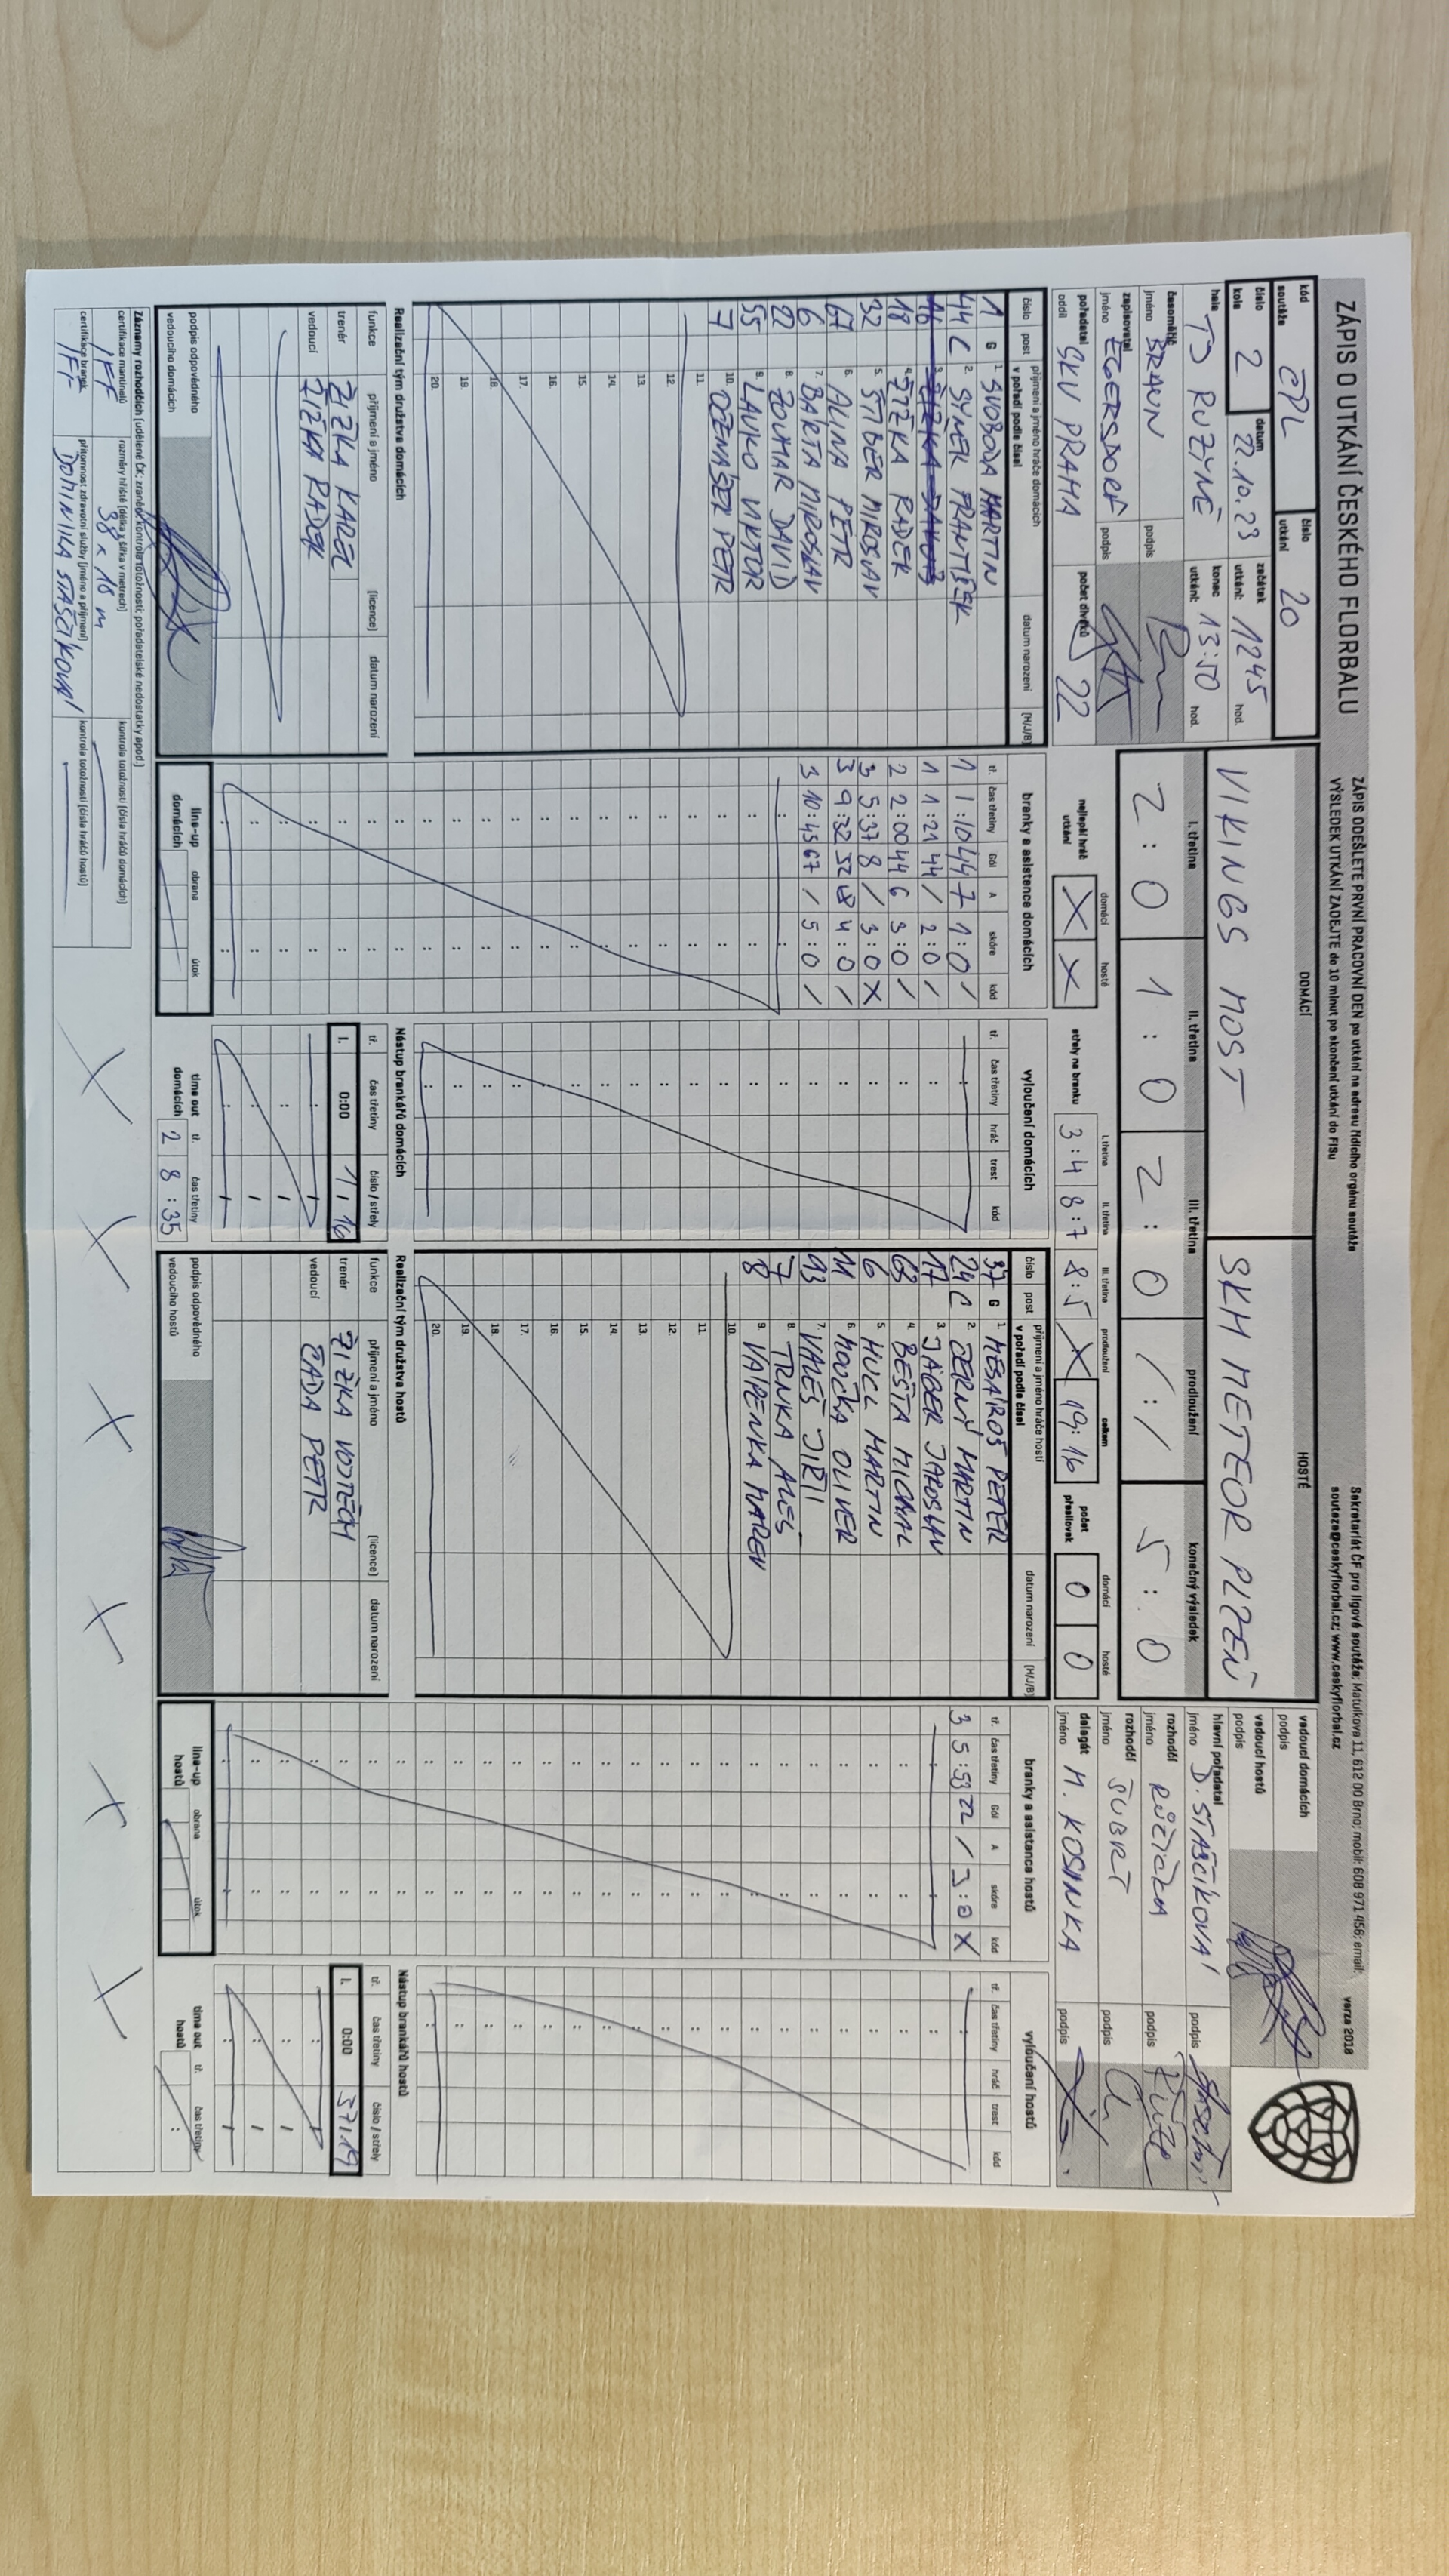 ZÁPIS O UTKÁNÍ ČESKÉHO FLORBALU
ZÁPIS ODEŠLETE PRVNÍ PRACOVNÍ DEN po utkání na adresu řídícího orgánu soutěže
VÝSLEDEK UTKÁNÍ ZADEJTE do 10 minut po skončení utkání do FISu
Sekretariát ČF pro ligové soutěže: Matulkova 11, 612 00 Brno; mobil: 608 971 456; email:
souteze@ceskyflorbal.cz; www.ceskyflorbal.cz
verze 2018
kód soutěže ČPL číslo utkání 20
číslo kola 2 datum 22.10.23 začátek utkání: 1245 hod.
hala TJ RUZYNĚ konec utkání: 13:50 hod.
časoměřič jméno BRAUN podpis
zapisovatel jméno EGERSDORF podpis
pořadatel oddíl SKV PRAHA počet diváků 22
DOMÁCÍ HOSTÉ
VIKINGS MOST SKH METEOR PLZEŇ
I. třetina II. třetina III. třetina prodloužení konečný výsledek
2 : 0 1 : 0 2 : 0 / : / 5 : 0
nejlepší hráč utkání domácí X hosté X
střely na branku I. třetina 3:4 II. třetina 8:7 III. třetina 8:5 prodloužení X celkem 19:16
počet přesilovek domácí 0 hosté 0
vedoucí domácích podpis
vedoucí hostů podpis
hlavní pořadatel jméno D. STAŠČÍKOVÁ podpis
rozhodčí jméno RŮŽIČKA podpis
rozhodčí jméno ŠUBRT podpis
delegát jméno M. KOSINKA podpis
číslo post příjmení a jméno hráče domácích v pořadí podle čísel datum narození (H/J/B)
1 G 1. SVOBODA MARTIN
44 C 2. SYNEK FRANTIŠEK
18 4. JEŽKA RADEK
32 5. ŠTIBER MIROSLAV
67 6. ALINA PETR
6 7. BARTA MIROSLAV
22 8. ZOUHAR DAVID
55 9. LAVKO VIKTOR
7 10. OŽENAŠEK PETR
11.
12.
13.
14.
15.
16.
17.
18.
19.
20.
branky a asistence domácích
tř. čas třetiny Gól A skóre kód
1 1:10 44 7 1:0 /
1 1:21 44 / 2:0 /
2 2:00 44 6 3:0 /
3 5:37 8 / 3:0 X
3 9:32 32 4:0 /
3 10:45 67 / 5:0 /
vyloučení domácích
tř. čas třetiny hráč trest kód
číslo post příjmení a jméno hráče hostí v pořadí podle čísel datum narození (H/J/B)
37 G 1. MESÁROŠ PETER
24 C 2. ČERNÝ MARTIN
17 3. JÄGER JAROSLAV
63 4. BEŠTA MICHAL
6 5. HUCL MARTIN
11 6. MOUČKA OLIVER
93 7. VALEŠ JIŘÍ
7 8. TRNKA ALEŠ
8 9. VAŘENKA MAREK
10.
11.
12.
13.
14.
15.
16.
17.
18.
19.
20.
branky a asistence hostů
tř. čas třetiny Gól A skóre kód
3 5:59 22 / 3:0 X
vyloučení hostů
tř. čas třetiny hráč trest kód
Realizační tým družstva domácích
funkce příjmení a jméno (licence) datum narození
trenér ŽIŽKA KAREL
vedoucí ŽIŽKA RADEK
podpis odpovědného vedoucího domácích
line-up domácích obrana útok
Nástup brankářů domácích
tř. čas třetiny číslo / střely
I. 0:00 1 / 16
time out domácích tř. 2 čas třetiny 8:35
Realizační tým družstva hostů
funkce příjmení a jméno (licence) datum narození
trenér ŽIŽKA VOJTĚCH
vedoucí ČADA PETR
podpis odpovědného vedoucího hostů
line-up hostů obrana útok
Nástup brankářů hostů
tř. čas třetiny číslo / střely
I. 0:00 37 / 19
time out hostů tř. čas třetiny
Záznamy rozhodčích (udělené ČK; zranění; kontrola totožnosti; pořadatelské nedostatky apod.)
certifikace mantinelů IFF rozměry hřiště (délka x šířka v metrech) 38 x 18 m kontrola totožnosti (čísla hráčů domácích)
certifikace branek IFF přítomnost zdravotní služby (jméno a příjmení) DOMINIKA STAŠČÍKOVÁ kontrola totožnosti (čísla hráčů hostů)